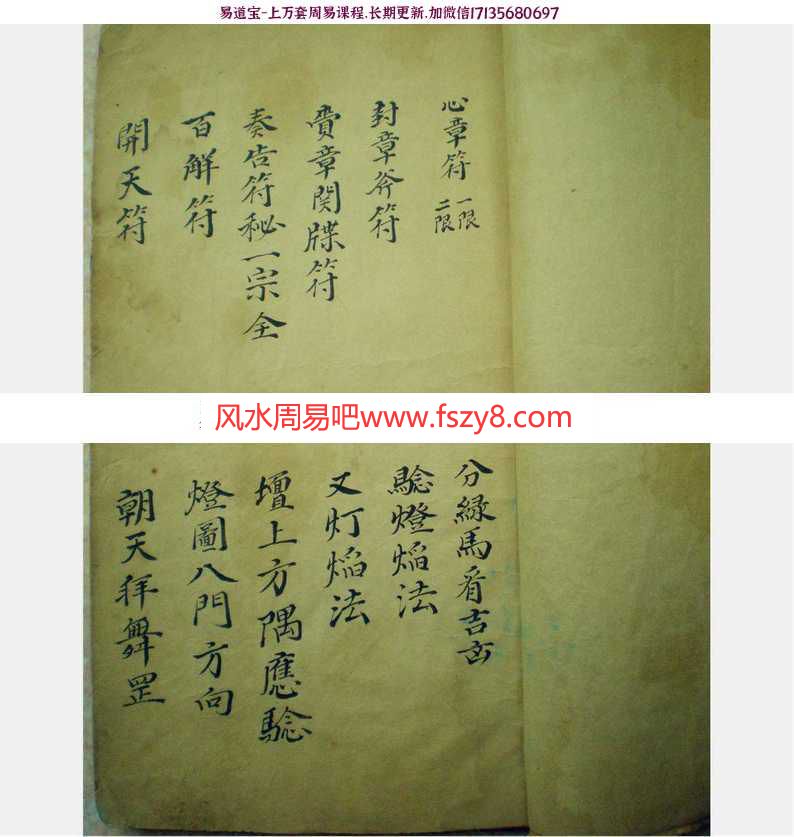 易道宝-上万套周易课程.长期更新.加微信17135680697
心章符 一限 二限
封章斧符
賫章関牒符
奏告符秘一宗全
百解符
開天符
风水周易吧www.fszy8.com
分緑馬看吉凶
驗燈焔法
又灯焔法
壇上方隅應驗
燈圖八門方向
朝天拝舞罡